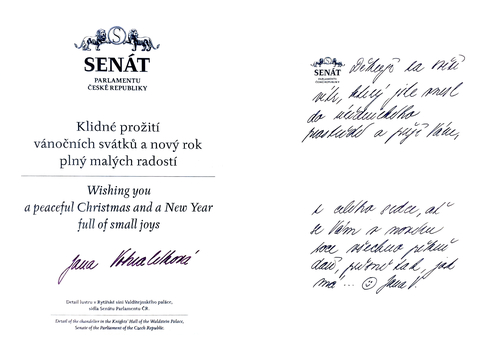 SENÁT
PARLAMENTU
ČESKÉ REPUBLIKY
Klidné prožití
vánočních svátků a nový rok
plný malých radostí
Wishing you
a peaceful Christmas and a New Year
full of small joys
Jana
Detail lustru v Rytířské síni Valdštejnského paláce,
sídla Senátu Parlamentu ČR.
Detail of the chandelier in the Knights' Hall of the Waldstein Palace,
Senate of the Parliament of the Czech Republic.
SENÁT
PARLAMENTU
ČESKÉ REPUBLIKY
Děkuji za
který jste
do
a přeji Vám,
z celého srdce, ať
se Vám v novém
roce všechno pěkně
daří, tak, jak
má... Jana V.